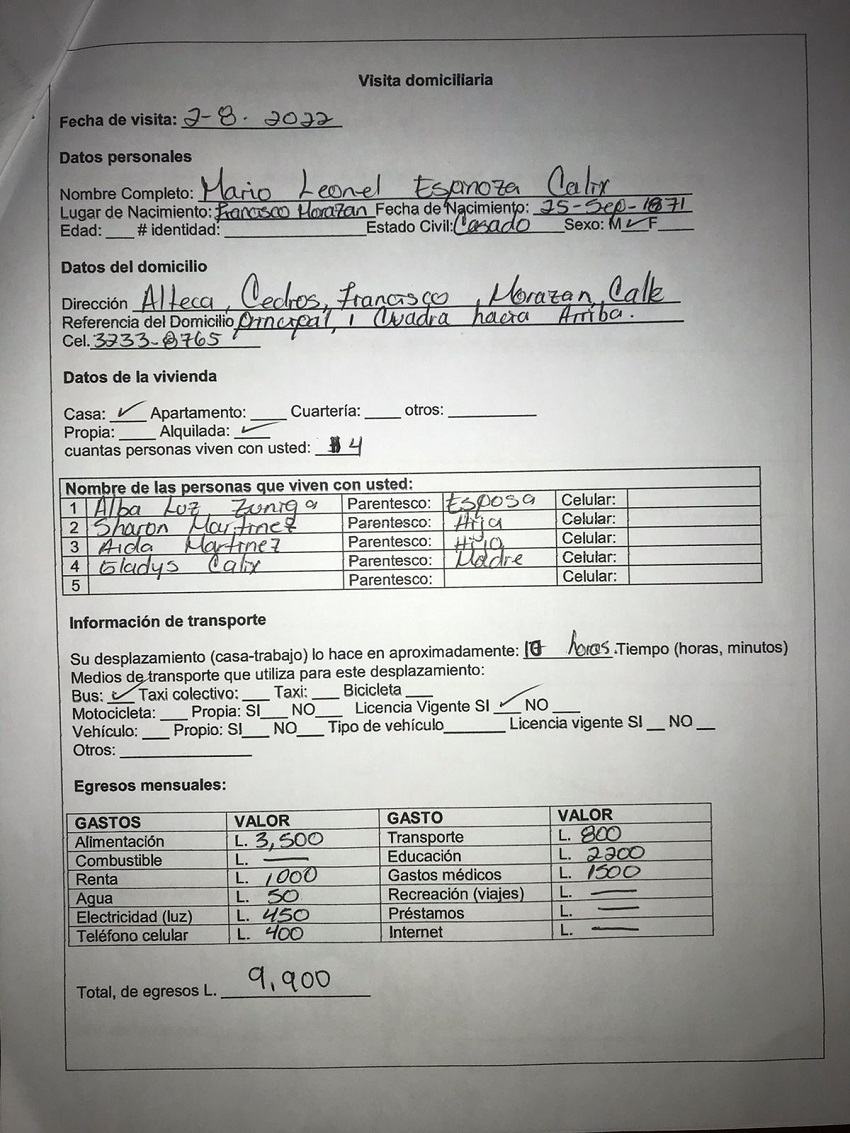 Visita domiciliaria
Fecha de visita: 2-8. 2022
Datos personales
Nombre Completo: Mario Leonel Espinoza Calix
Lugar de Nacimiento: Francisco Morazan Fecha de Nacimiento: 25-Sep-1871
Edad: ___ # identidad: ___ Estado Civil: Casado Sexo: M ✓ F ___
Datos del domicilio
Dirección Alteca, Cedros, Francisco, Morazan, Calle
Referencia del Domicilio principal, 1 Cuadra hacia Arriba.
Cel. 3233-8765
Datos de la vivienda
Casa: ✓ Apartamento: ___ Cuartería: ___ otros: ___
Propia: ___ Alquilada: ✓
cuantas personas viven con usted: 4
Nombre de las personas que viven con usted:
1 Alba Luz Zuniga Parentesco: Esposa Celular:
2 Sharon Martinez Parentesco: Hija Celular:
3 Aida Martinez Parentesco: Hija Celular:
4 Gladys Calix Parentesco: Madre Celular:
5 Parentesco: Celular:
Información de transporte
Su desplazamiento (casa-trabajo) lo hace en aproximadamente: horas. Tiempo (horas, minutos)
Medios de transporte que utiliza para este desplazamiento:
Bus: ✓ Taxi colectivo: ___ Taxi: ___ Bicicleta ___
Motocicleta: ___ Propia: SI ___ NO ___ Licencia Vigente SI ✓ NO ___
Vehículo: ___ Propio: SI ___ NO ___ Tipo de vehículo ___ Licencia vigente SI __ NO __
Otros: ___
Egresos mensuales:
GASTOS VALOR GASTO VALOR
Alimentación L. 3,500 Transporte L. 800
Combustible L. — Educación L. 2200
Renta L. 1000 Gastos médicos L. 1500
Agua L. 50 Recreación (viajes) L. —
Electricidad (luz) L. 450 Préstamos L. —
Teléfono celular L. 400 Internet L. —
Total, de egresos L. 9,900